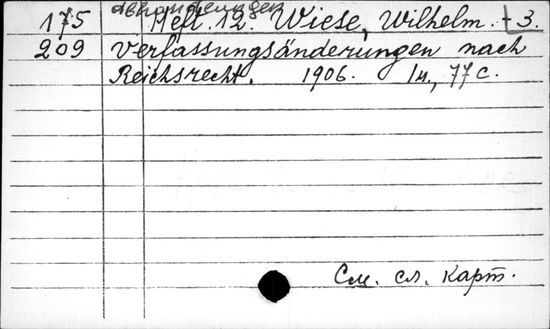 Abhandlungen
175 Heft 12. Wiese, Wilhelm. - 3.
209 Verfassungsänderungen nach
Reichsrecht. 1906. 1н., 77 с.
См. сл. карт.